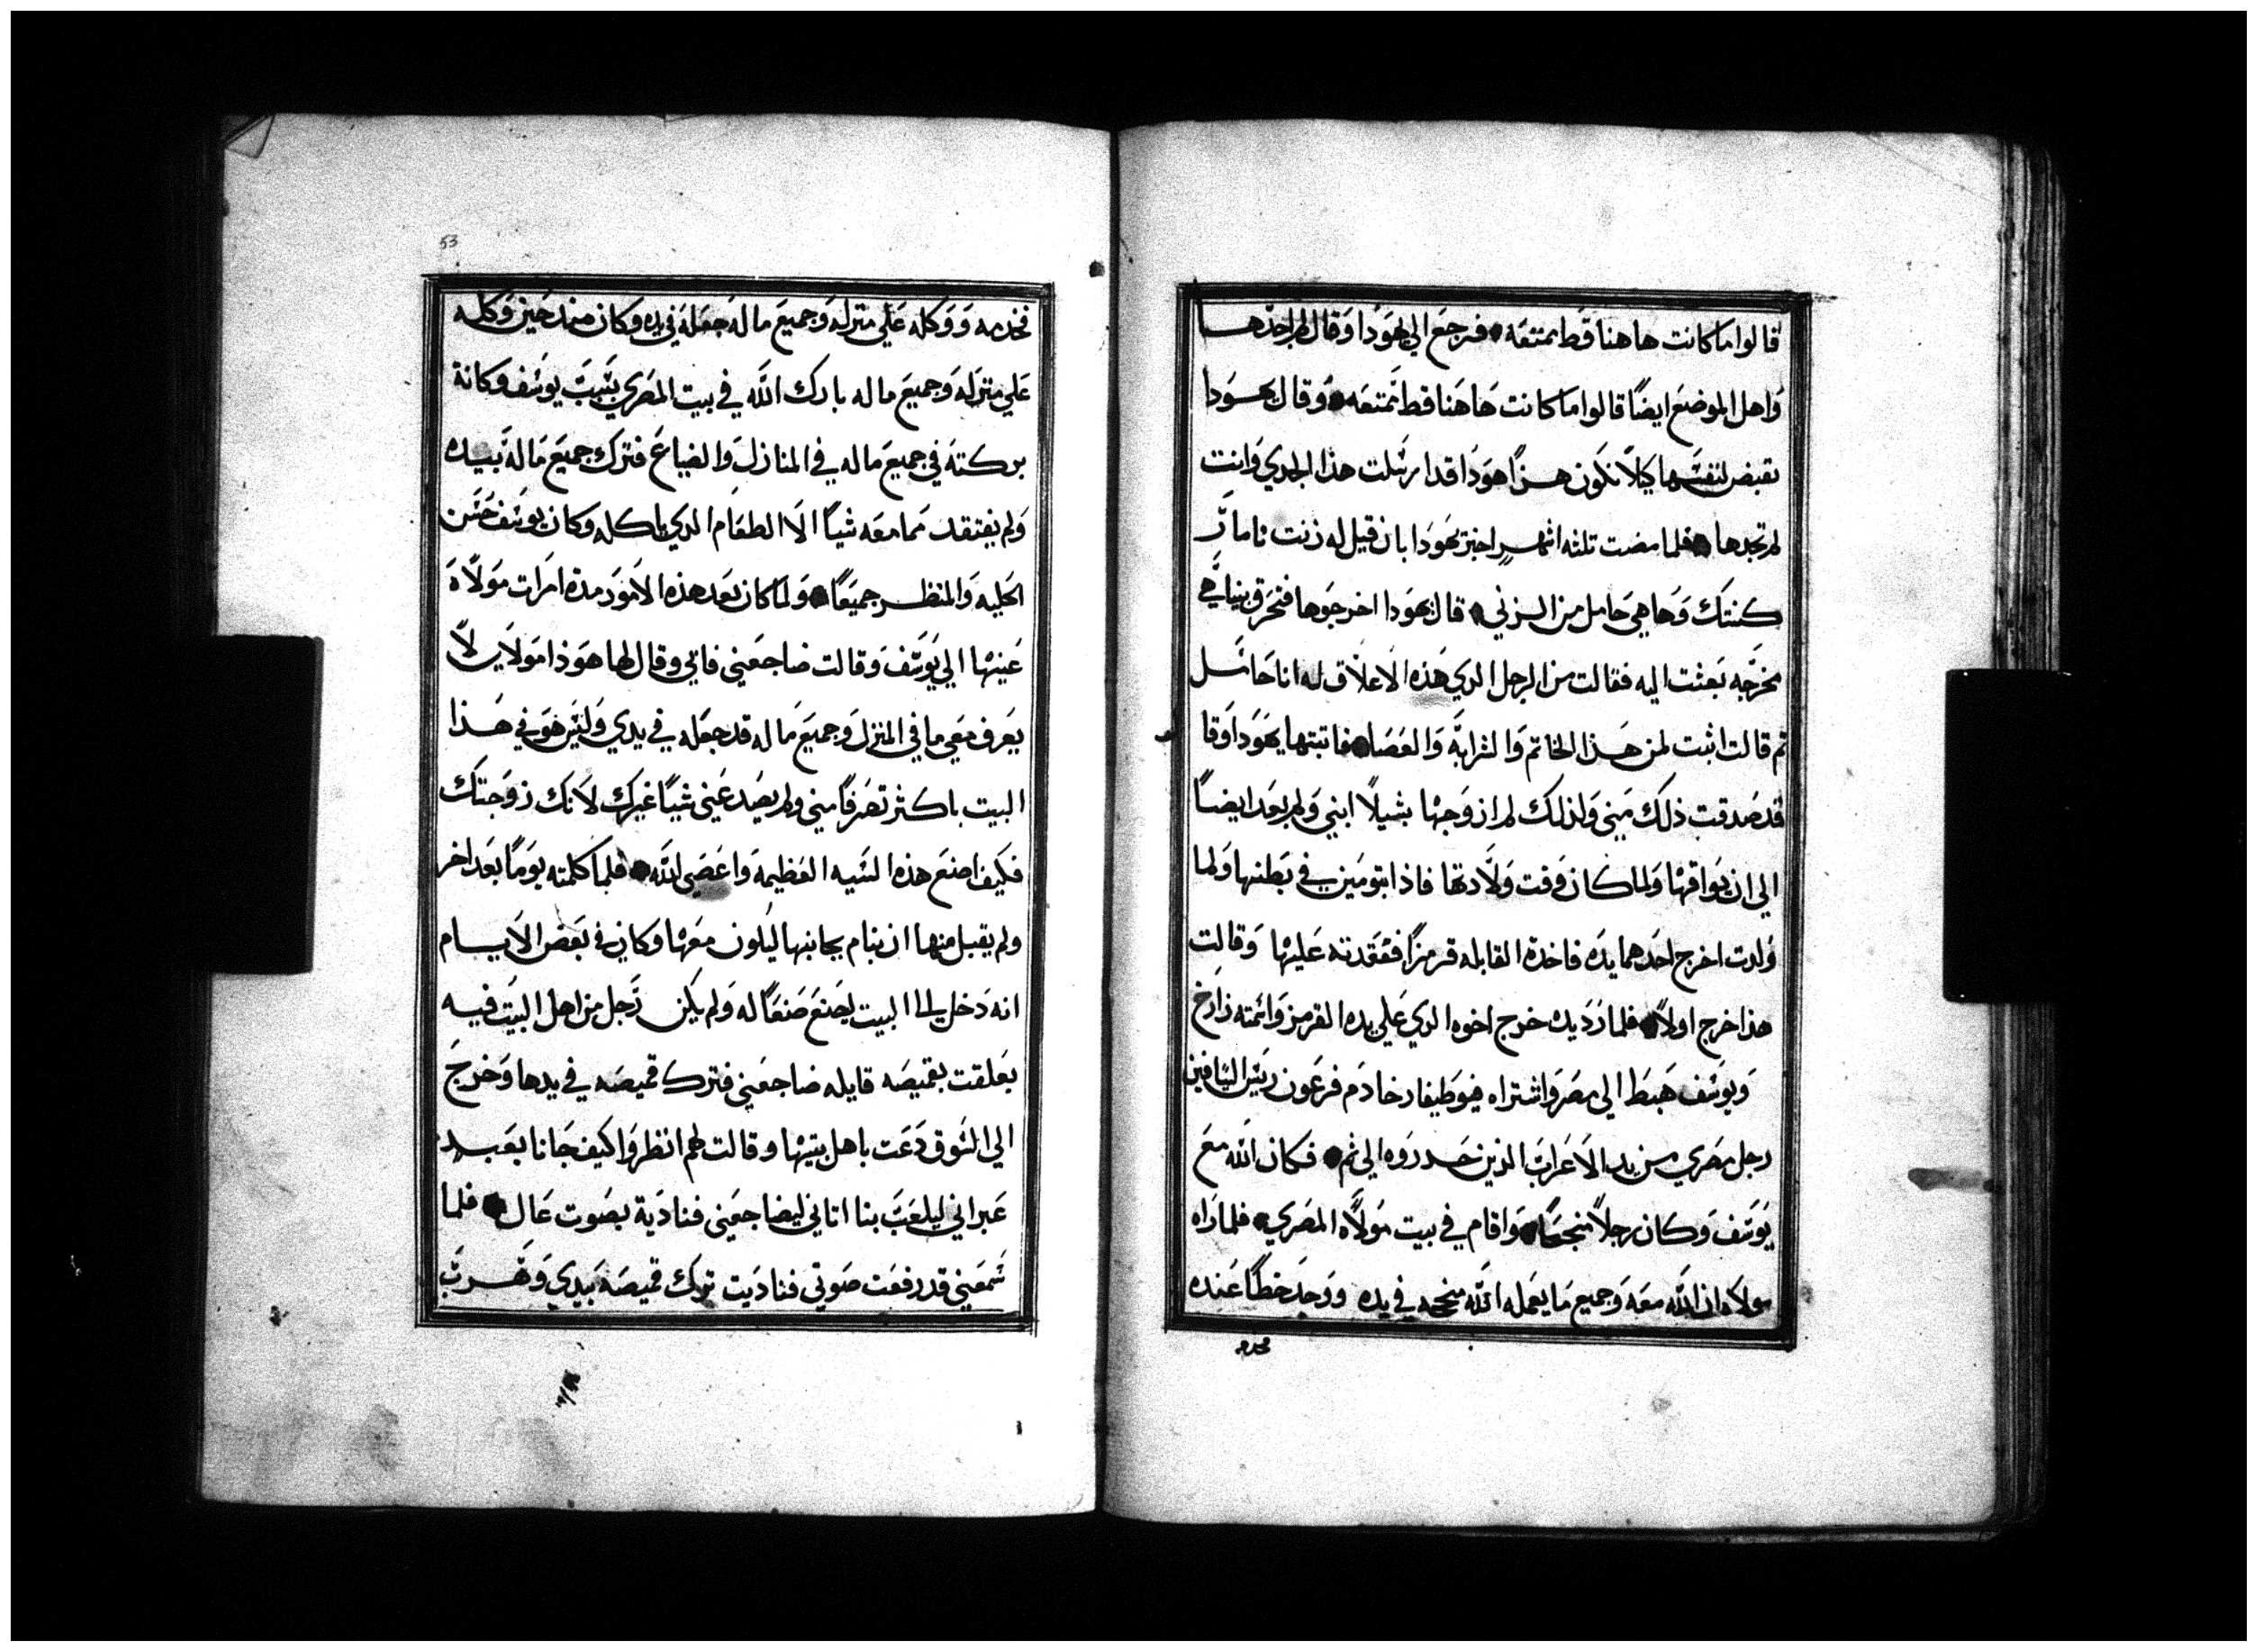 قالوا ما كانت هاهنا قط ممتعه • فرجع الي يهودا وقال لم اجدها
واهل الموضع ايضًا قالوا ما كانت هاهنا قط ممتعه • وقال يهودا
تقبض لنفسها كيلا نكون هزاً هوذا قد ارسلت هذا الجدي وانت
لم تجدها • فلما مضت تلثه اشهرٍ اخبر يهودا بان قيل له زنت تامار
كنتك وها هي حامل من الزني • قال يهودا اخرجوها فتحرق بينا هي
مخرجه بعثت اليه فقالت من الرجل الدي هذه الاعلاق له انا حامل
تم قالت اثبت لمن هذا الخاتم والشرابه والعصا • فاتبتها يهودا وقا
قد صدقت ذلك مني ولذلك لم ازوجها بشيلا ابني ولم يعد ايضاً
الي ان يواقعها ولما كان وقت ولادتها فاذا بتومين في بطنها ولما
ولدت اخرج احدهما يده فاخدة القابله قرمزاً فعقدته عليها وقالت
هذا خرج اولاً • فلما رد يده خرج اخوه الدي علي يده القرمز واسمته زارخ
ويوسف هبط الي مصر واشتراه فوطيفار خادم فرعون ريس السيافين
رجل مصري من يد الاعراب الذين حدروه الي ثم • فكان الله مع
يوسف وكان رجلاً منجحًا • واقام في بيت مولاه المصري • فلما راه
مولاه ان الله معه وجميع ما يعمله الله منجحه في يده ووجد خطًا عنده
فخدمه
53
فخدمه ووكله علي منزله وجميع ما له جعله في يده وكان منذ حين وكله
علي منزله وجميع ماله بارك الله في بيت المصري بسبب يوسف وكانة
بركته في جميع ماله في المنازل والضياع فترك جميع ماله بيده
ولم يفتقد مما معه شياً الا الطعام الدي ياكله وكان يوسف حسن
الحليه والمنظر جميعًا • ولما كان بعد هذه الامور مدة امرات مولاه
عينها الي يوسف وقالت ضاجعني فابي وقال لها هوذا مولاي لا
يعرف معي ما في المنزل وجميع ماله قد جعله في يدي وليس هو في هذا
البيت باكثر تصرفاً مني ولم يصد عني شياً غيرك لانك زوجتك
فكيف اصنع هذه السيه العظيمة واعصي الله • فلما كلمته يومًا بعد اخر
ولم يقبل منها ان ينام بجانبها ليكون معها وكان في بعض الايام
انه دخل الي البيت يصنع صنعًا له ولم يكن رجل من اهل البيت فيه
بعلقت بقميصه قايله ضاجعني فترك قميصه في يدها وخرج
الي السوق دعت باهل بيتها وقالت لهم انظروا كيف جانا بعبد
عبراني ليلعب بنا اتاني ليضاجعني فناديه بصوت عال • فلما
سمعني قد رفعت صوتي فناديت ترك قميصه بيدي وهرب